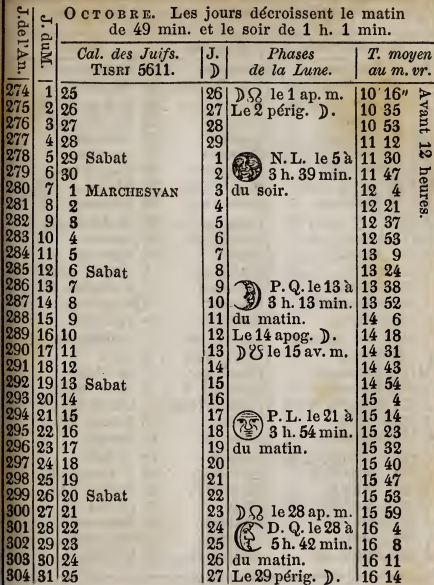 OCTOBRE. Les jours décroissent le matin
de 49 min. et le soir de 1 h. 1 min.
J. de l'An. J. du M. Cal. des Juifs. J. Phases T. moyen
TISRI 5611. ☽ de la Lune. au m. vr.
274 1 25 26 ☽☊ le 1 ap. m. 10 16"
275 2 26 27 Le 2 périg. ☽. 10 35
276 3 27 28 10 53
277 4 28 29 11 12
278 5 29 Sabat 1 N. L. le 5 à 11 30
279 6 30 2 3 h. 39 min. 11 47
280 7 1 MARCHESVAN 3 du soir. 12 4
281 8 2 4 12 21
282 9 3 5 12 37
283 10 4 6 12 53
284 11 5 7 13 9
285 12 6 Sabat 8 13 24
286 13 7 9 P. Q. le 13 à 13 38
287 14 8 10 3 h. 13 min. 13 52
288 15 9 11 du matin. 14 6
289 16 10 12 Le 14 apog. ☽. 14 18
290 17 11 13 ☽☋ le 15 av. m. 14 31
291 18 12 14 14 43
292 19 13 Sabat 15 14 54
293 20 14 16 15 4
294 21 15 17 P. L. le 21 à 15 14
295 22 16 18 3 h. 54 min. 15 23
296 23 17 19 du matin. 15 32
297 24 18 20 15 40
298 25 19 21 15 47
299 26 20 Sabat 22 15 53
300 27 21 23 ☽☊ le 28 ap. m. 15 59
301 28 22 24 D. Q. le 28 à 16 4
302 29 23 25 5 h. 42 min. 16 8
303 30 24 26 du matin. 16 11
304 31 25 27 Le 29 périg. ☽. 16 14
Avant 12 heures.